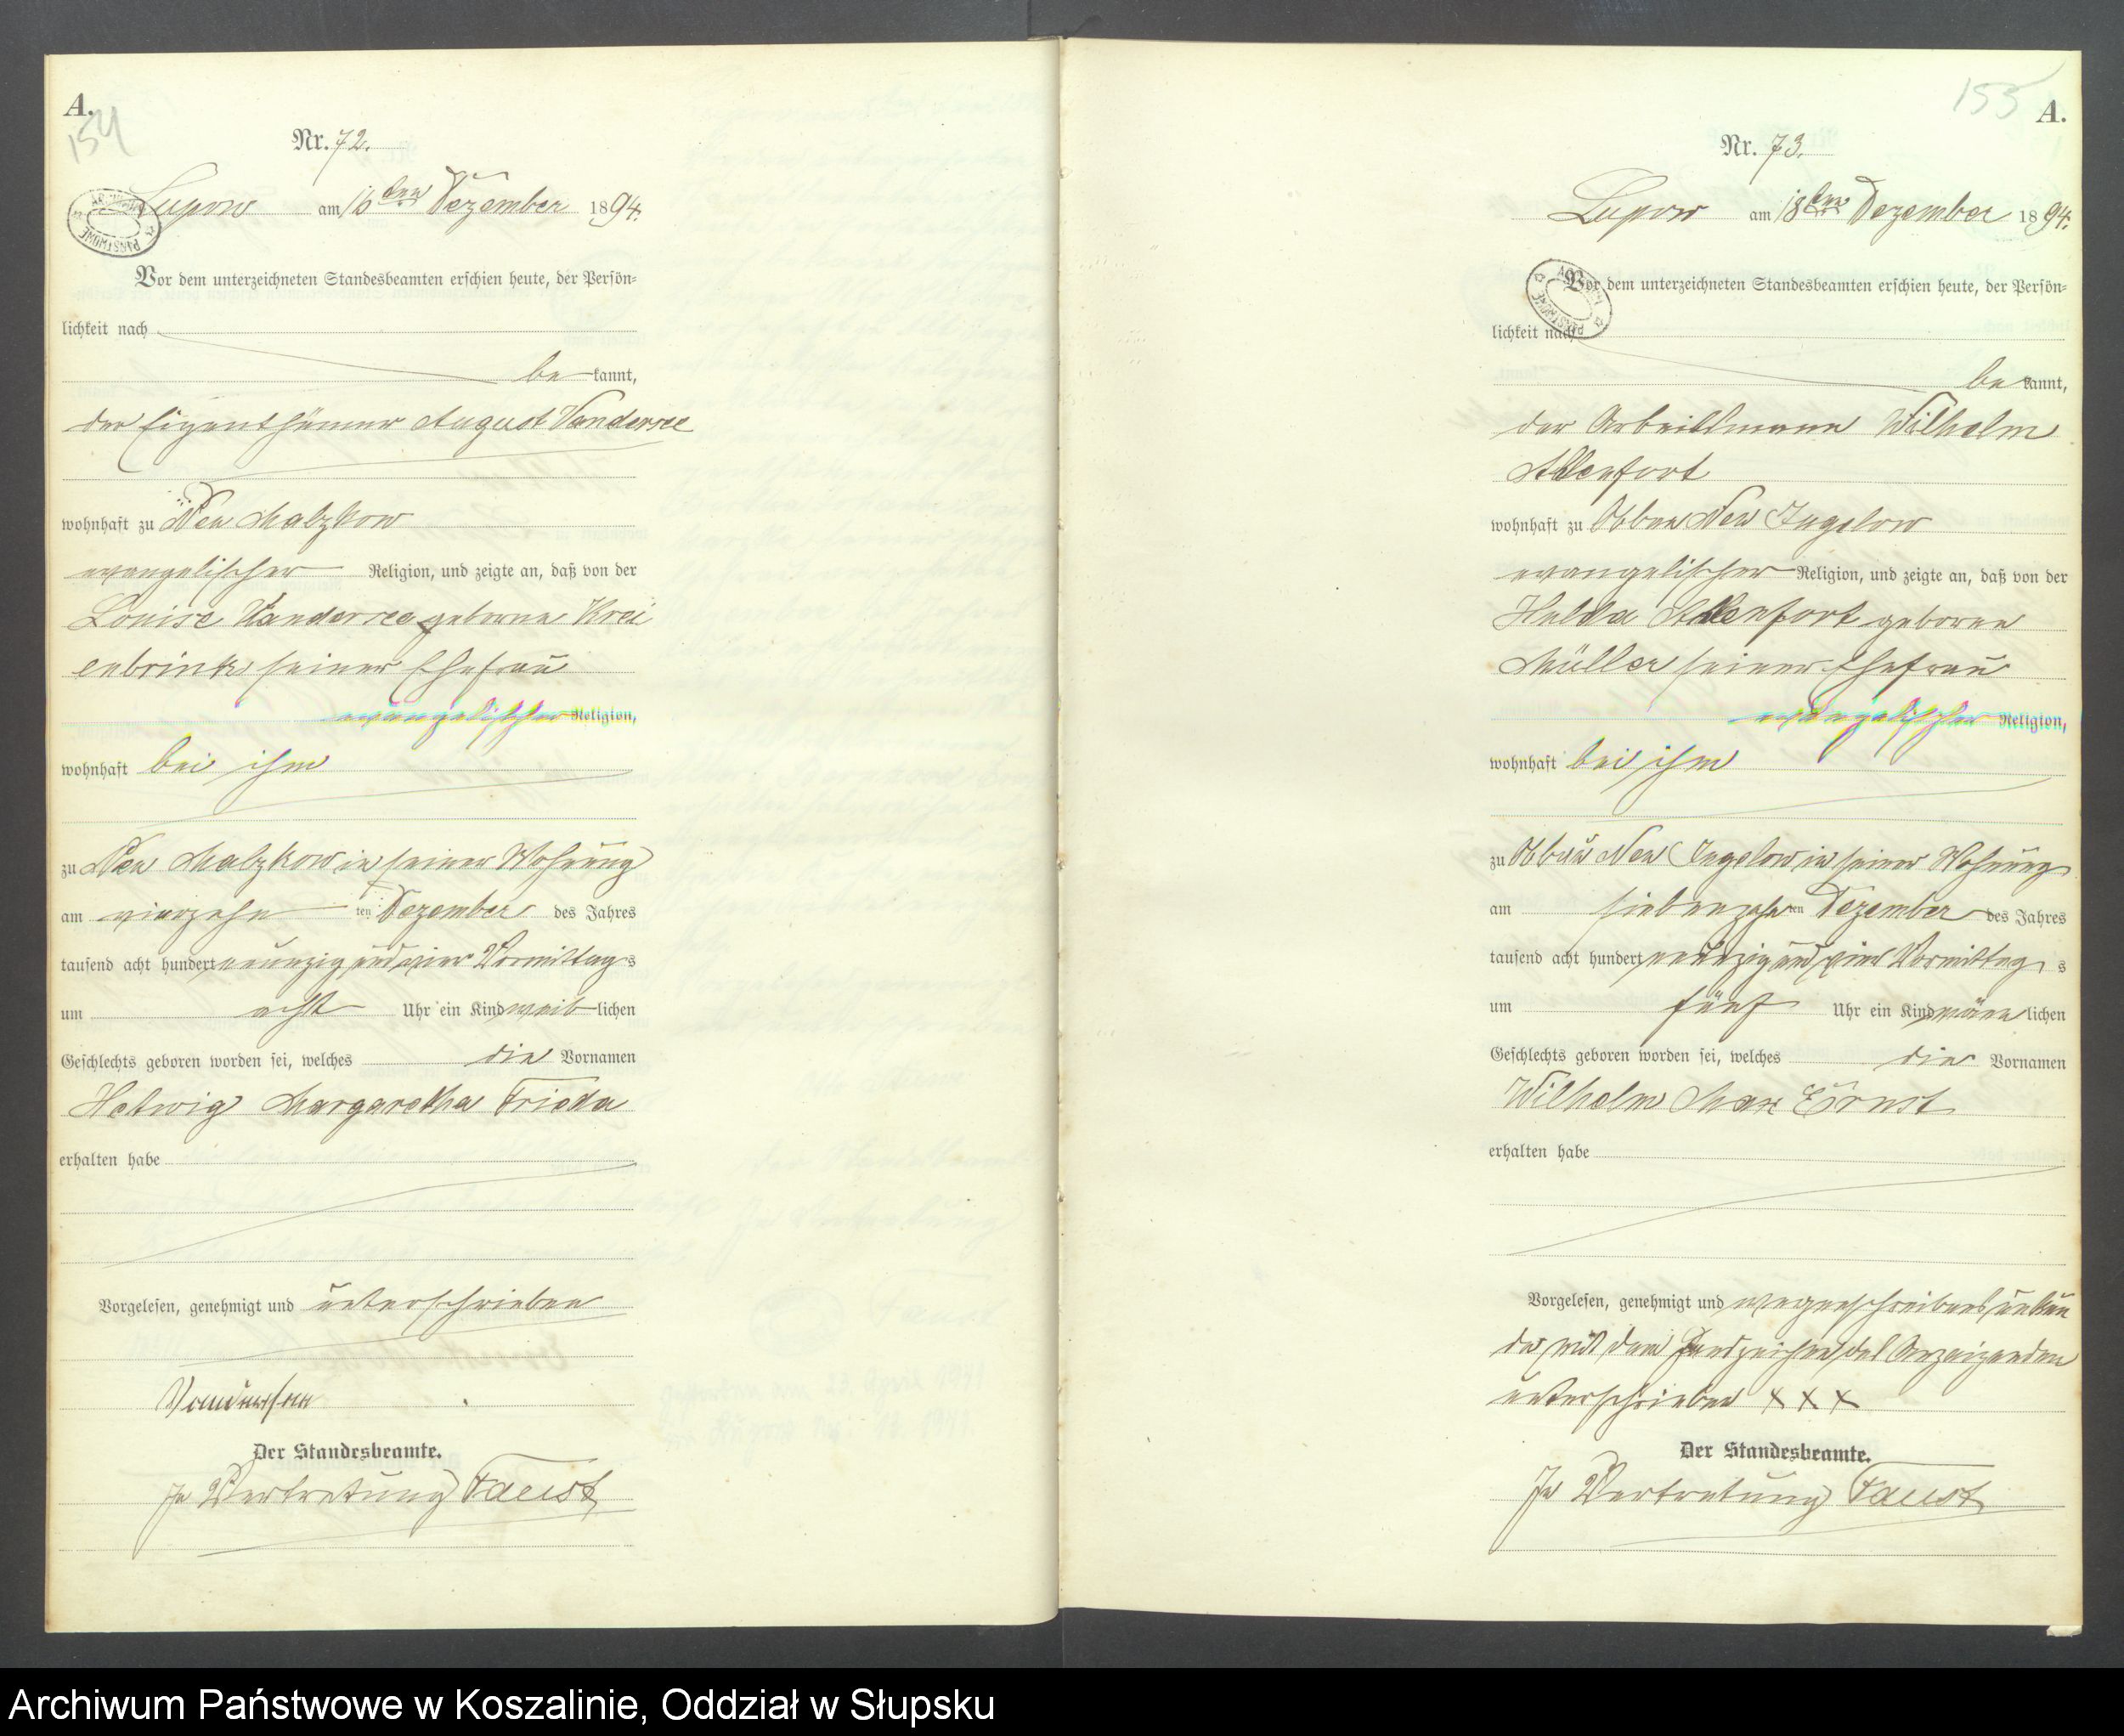 A.
154
Nr. 72.
Lupow am 16ten Dezember 1894.
Vor dem unterzeichneten Standesbeamten erschien heute, der Persön-
lichkeit nach
be kannt,
der Eigenthümer August Vandersee
wohnhaft zu Neu Malzkow
evangelischer Religion, und zeigte an, daß von der
Louise Vandersee geborne Krei
enbrink seiner Ehefrau
evangelischer Religion,
wohnhaft bei ihm
zu Neu Malzkow in seiner Wohnung
am vierzehn ten Dezember des Jahres
tausend acht hundert neunzig und vier Vormittag s
um acht Uhr ein Kind weib lichen
Geschlechts geboren worden sei, welches die Vornamen
Hetwig Margaretha Frieda
erhalten habe
Vorgelesen, genehmigt und unterschrieben
Vandersee
Der Standesbeamte.
In Vertretung Faust
155
A.
Nr. 73.
Lupow am 18ten Dezember 1894.
Vor dem unterzeichneten Standesbeamten erschien heute, der Persön-
lichkeit nach
be kannt,
der Arbeitsmann Wilhelm
wohnhaft zu Neu Jugelow
evangelischer Religion, und zeigte an, daß von der
Hulda geborne
Müller seiner Ehefrau
evangelischer Religion,
wohnhaft bei ihm
zu Neu Jugelow in seiner Wohnung
am siebenzehn ten Dezember des Jahres
tausend acht hundert neunzig und vier Vormittag s
um fünf Uhr ein Kind männ lichen
Geschlechts geboren worden sei, welches die Vornamen
Wilhelm Max Ernst
erhalten habe
Vorgelesen, genehmigt und wegen Schreibens unkun
de mit dem Handzeichen des Anzeigenden
unterschrieben XXX
Der Standesbeamte.
In Vertretung Faust
Archiwum Państwowe w Koszalinie, Oddział w Słupsku